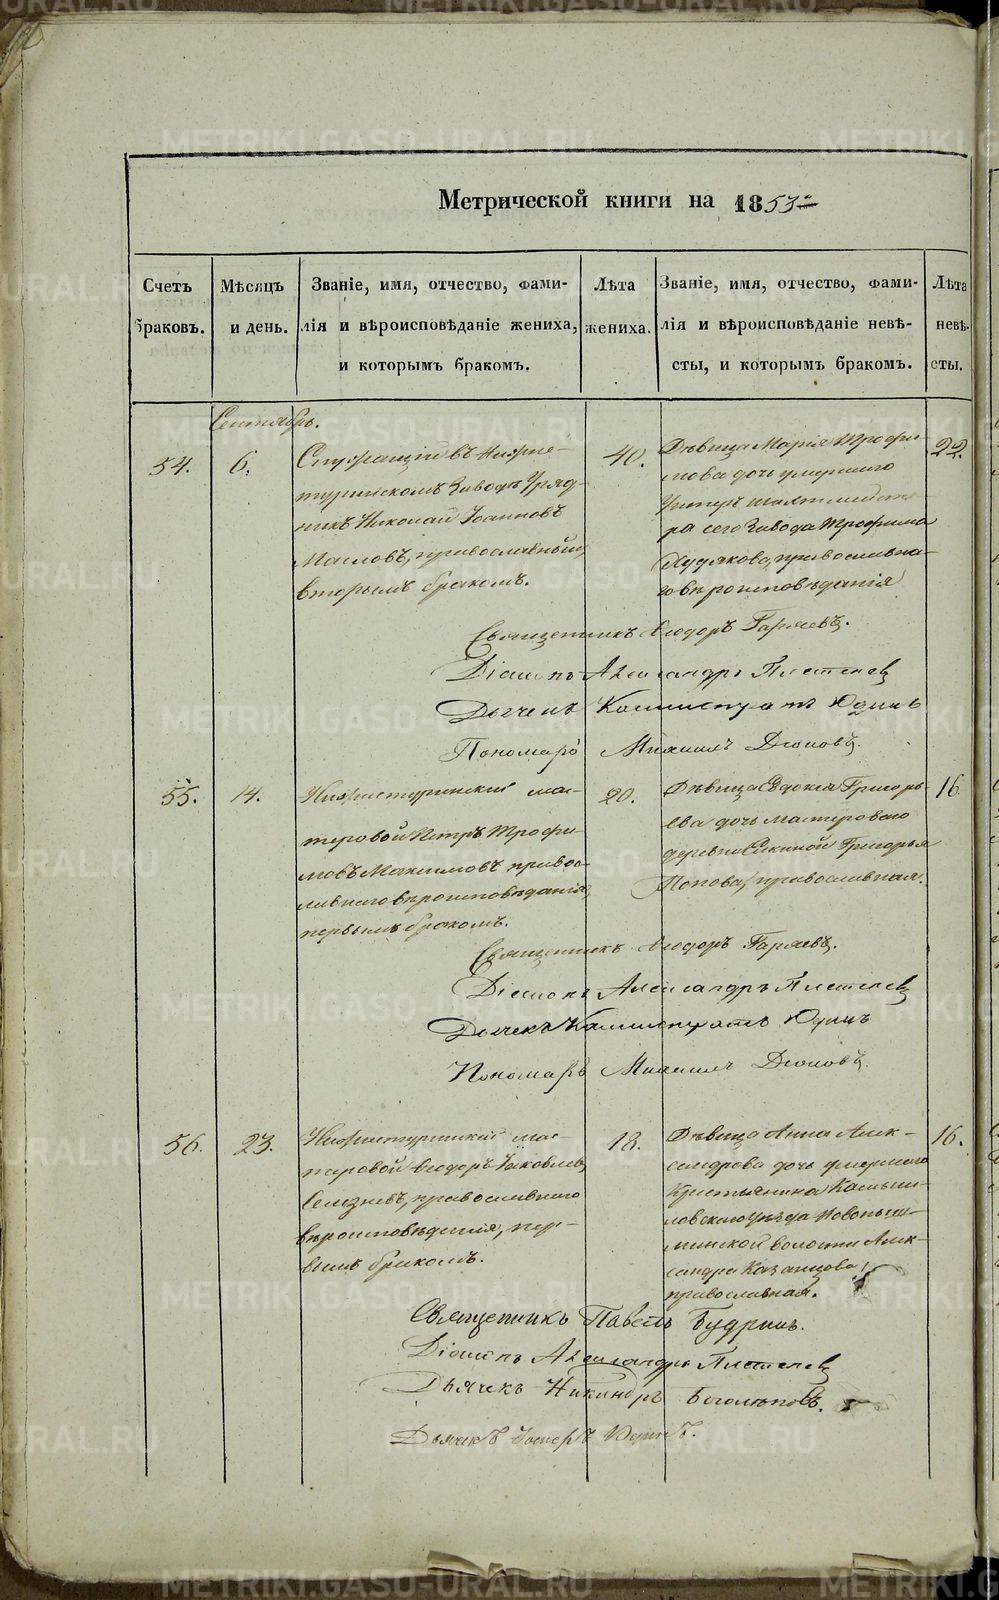 Метрической книги на 1853й
Счетъ браковъ.
Мѣсяцъ и день.
Званіе, имя, отчество, фами-
лія и вѣроисповѣданіе жениха,
и которымъ бракомъ.
Лѣта жениха.
Званіе, имя, отчество, фами-
лія и вѣроисповѣданіе невѣ-
сты, и которымъ бракомъ.
Лѣта невѣ-
сты.
Сентябрь.
54.
6.
Служащій въ Нижне-
туринскомъ Заводѣ Уряд-
никъ Николай Іоанновъ
Масловъ, православный,
вторымъ бракомъ.
40.
Дѣвица Марія Трофи-
мова дочь умершаго
Унтеръ шихтмейсте-
ра сего Завода Трофима
Худякова, православна-
го вѣроисповѣданія
22.
Священникъ Ѳеодоръ Гаряевъ.
Діаконъ Александръ Плетеневъ
Дьячекъ Калистратъ Юдинъ
Пономарь Михаилъ Діоновъ.
55.
14.
Нижнетуринскій мас-
теровой Петръ Трофи
мовъ Максимовъ правос-
лавнаго вѣроисповѣданія,
первымъ бракомъ.
20.
Дѣвица Евдокія Григорь-
ева дочь мастероваго
деревни Елкиной Григорья
Попова, православная.
16.
Священникъ Ѳеодоръ Гаряевъ.
Діаконъ Александръ Плетеневъ
Дьячекъ Калистратъ Юдинъ
Пономарь Михаилъ Діоновъ.
56.
23.
Нижнетуринскій мас-
теровой Ѳеодоръ Іаковлевъ
Селезневъ, православнаго
вѣроисповѣданія, пер-
вымъ бракомъ.
18.
Дѣвица Анна Алек-
сандрова дочь умершаго
Крестьянина Камыш-
ловскаго Уѣзда Новопыш-
минской волости Алек-
сандра Казанцова,
православная.
16.
Священникъ Павелъ Будринъ.
Діаконъ Александръ Плетеневъ
Дьячекъ Никандръ Боголѣповъ.
Дьячекъ
METRIKI.GASO-URAL.RU